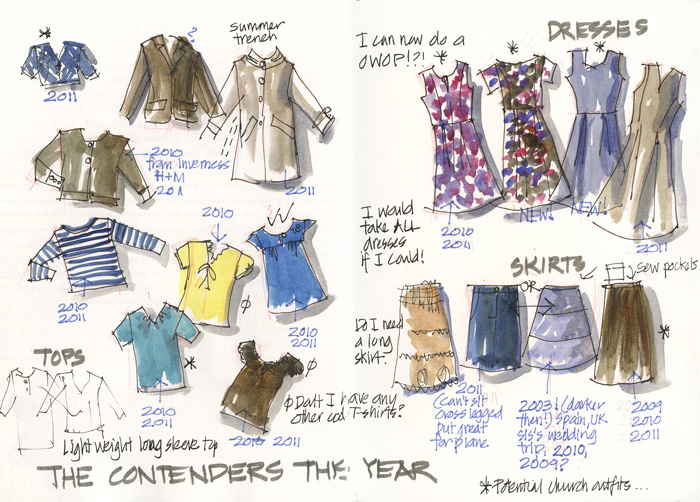 *
2011
?
summer
trench
2010
from Inverness
H+M
2011
2011
2010
2010
2011
2010
2011
TOPS
*
2010
2011
φ
φ
φ Don't I have any
other cool T-shirts?
Light weight long sleeve top
2010 2011
THE CONTENDERS THIS YEAR
DRESSES
I can now do a
OWOP!?!
*
*
*
2010
2011
NEW!
NEW!
2011
I would
take ALL
dresses
if I could!
SKIRTS
sew pockets
OR
Do I need
a long
skirt?
2011
(can't sit
cross legged
but great
for plane
2003! (darker
then!) Spain, UK
sis's wedding
trip, 2010,
2009?
*
2009
2010
2011
*Potential church outfits...